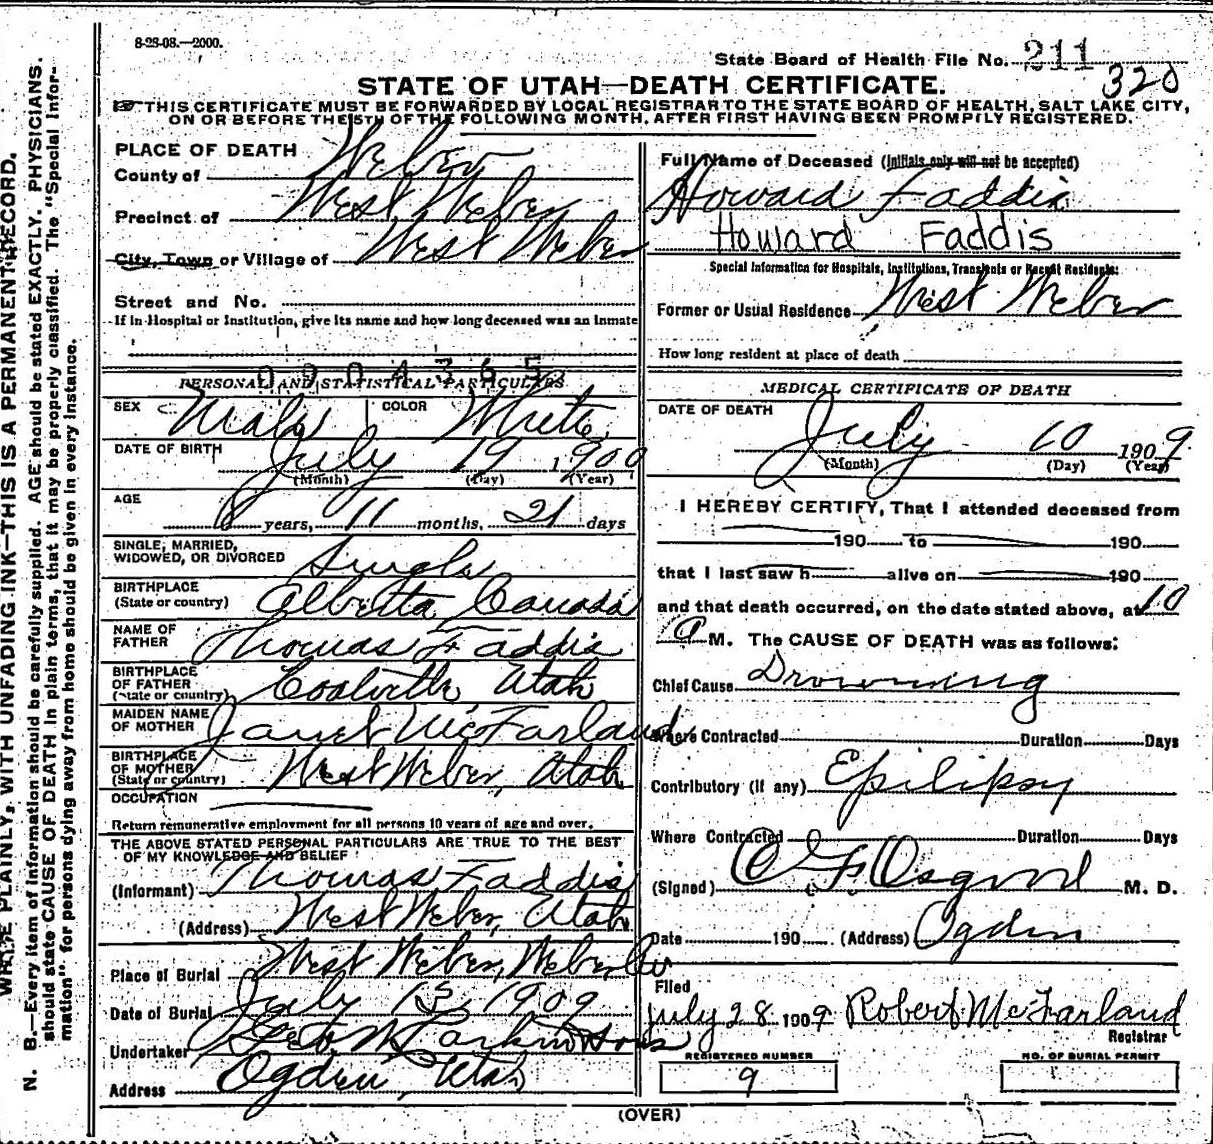 8-28-08.—2000.
State Board of Health File No. 211
320
STATE OF UTAH—DEATH CERTIFICATE.
THIS CERTIFICATE MUST BE FORWARDED BY LOCAL REGISTRAR TO THE STATE BOARD OF HEALTH, SALT LAKE CITY,
ON OR BEFORE THE 5TH OF THE FOLLOWING MONTH, AFTER FIRST HAVING BEEN PROMPTLY REGISTERED.
PLACE OF DEATH
County of Weber
Precinct of West Weber
City, Town or Village of West Weber
Street and No.
If in Hospital or Institution, give its name and how long deceased was an Inmate
0904365
PERSONAL AND STATISTICAL PARTICULARS
SEX Male COLOR White
DATE OF BIRTH July 19, 1900
(Month) (Day) (Year)
AGE 8 years, 11 months, 21 days
SINGLE, MARRIED,
WIDOWED, OR DIVORCED Single
BIRTHPLACE
(State or country) Alberta Canada
NAME OF
FATHER Thomas Faddis
BIRTHPLACE
OF FATHER
(State or country) Coalville, Utah
MAIDEN NAME
OF MOTHER Janet McFarland
BIRTHPLACE
OF MOTHER
(State or country) West Weber, Utah
OCCUPATION
Return remunerative employment for all persons 10 years of age and over.
THE ABOVE STATED PERSONAL PARTICULARS ARE TRUE TO THE BEST
OF MY KNOWLEDGE AND BELIEF
(Informant) Thomas Faddis
(Address) West Weber, Utah
Place of Burial West Weber, Weber Co
Date of Burial July 13, 1909
Undertaker Larkin & Sons
Address Ogden, Utah
Full Name of Deceased (Initials only will not be accepted)
Howard Faddis
Howard Faddis
Special Information for Hospitals, Institutions, Transients or Recent Residents:
Former or Usual Residence West Weber
How long resident at place of death
MEDICAL CERTIFICATE OF DEATH
DATE OF DEATH
July 10 1909.
(Month) (Day) (Year)
I HEREBY CERTIFY, That I attended deceased from
190 to 190
that I last saw h alive on 190
and that death occurred, on the date stated above, at 10
A M. The CAUSE OF DEATH was as follows:
Chief Cause Drowning
Where Contracted Duration Days
Contributory (if any) Epilipsy
Where Contracted Duration Days
(Signed) Osgood M. D.
Date 190 (Address) Ogden
Filed
July 28 1909 Robert McFarland
Registrar
REGISTERED NUMBER
9
NO. OF BURIAL PERMIT
(OVER)
WRITE PLAINLY, WITH UNFADING INK—THIS IS A PERMANENT RECORD.
N. B.—Every item of information should be carefully supplied. AGE should be stated EXACTLY. PHYSICIANS
should state CAUSE OF DEATH in plain terms, that it may be properly classified. The "Special Infor-
mation" for persons dying away from home should be given in every instance.